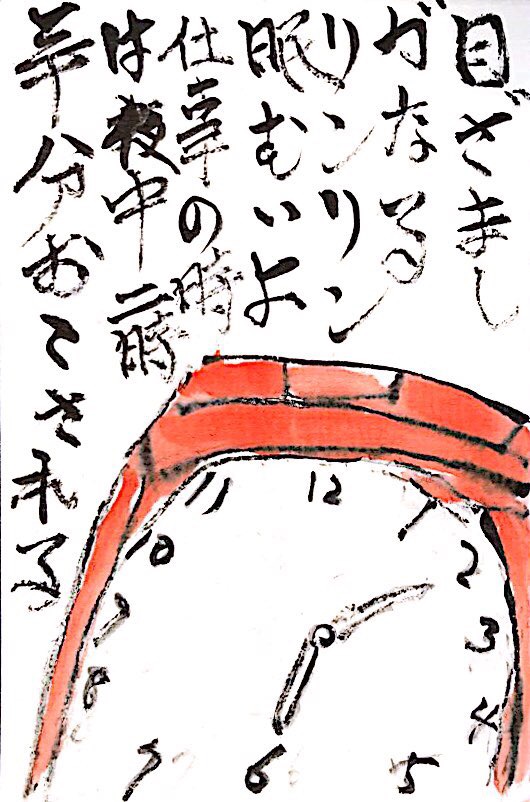 目ざまし
がなる
リンリン
眠むいよ
仕事の時
は夜中二時
半分おこされる
11 12 1
10 2
9 3
8 4
7 6 5